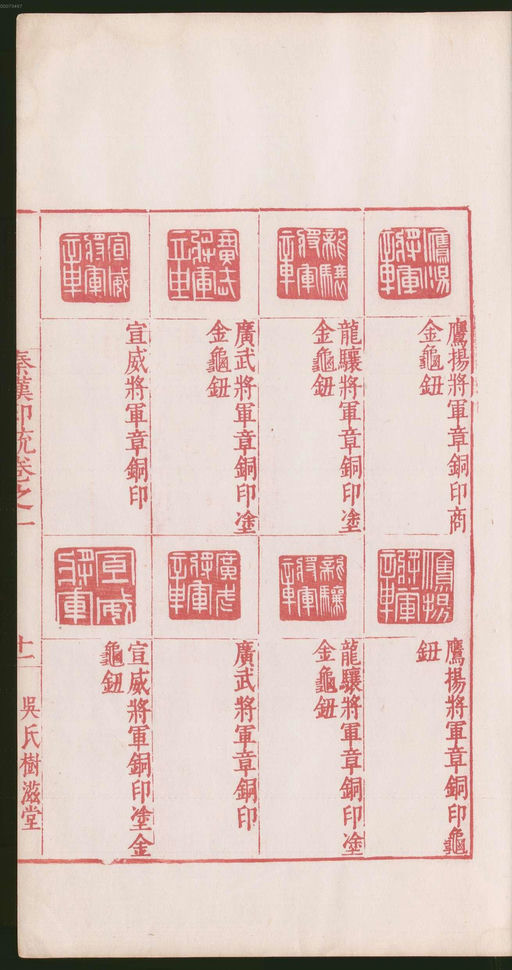 00073467
鷹揚將軍章
龍驤將軍章
廣武將軍章
宣威將軍章
鷹揚將軍章銅印商
金龜鈕
龍驤將軍章銅印塗
金龜鈕
廣武將軍章銅印塗
金龜鈕
宣威將軍章銅印
鷹揚將軍章
龍驤將軍章
廣武將軍章
宣威將軍
鷹揚將軍章銅印龜
鈕
龍驤將軍章銅印塗
金龜鈕
廣武將軍章銅印
宣威將軍銅印塗金
龜鈕
秦漢印統卷之一
十一
吳氏樹滋堂